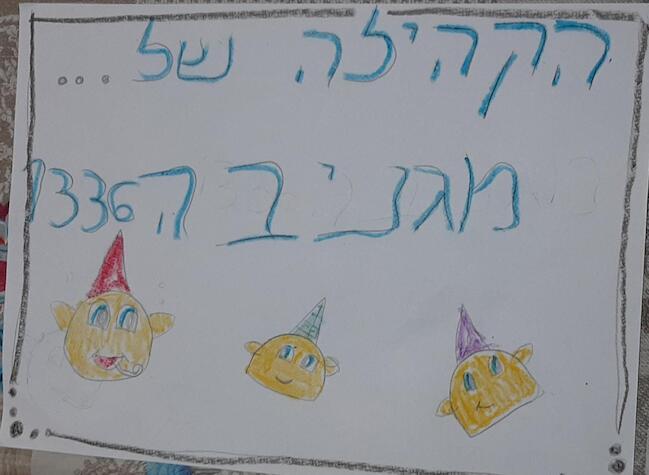 הקהילה של...
מגניב ה1336